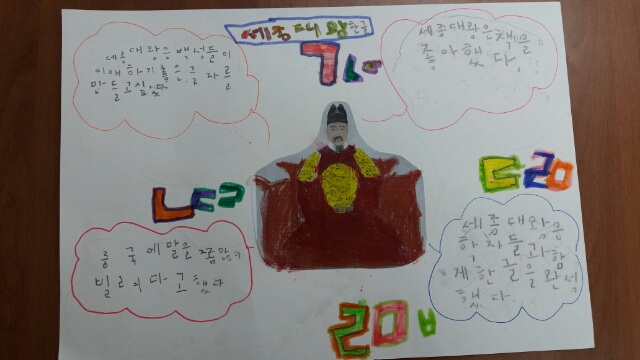 세종대왕 한글
ㄱㄴ
세종대왕은 백성들이
이해하기 쉬운 글자를
만들고 싶었다.
세종대왕은 책을
좋아했다.
ㄴㄷㄹ
ㄷㄹㅁ
중국에 말을 좀
빌리다고 했다
세종대왕은
학자들과 함
께 한글을 완성
했다.
ㄹㅁㅂ